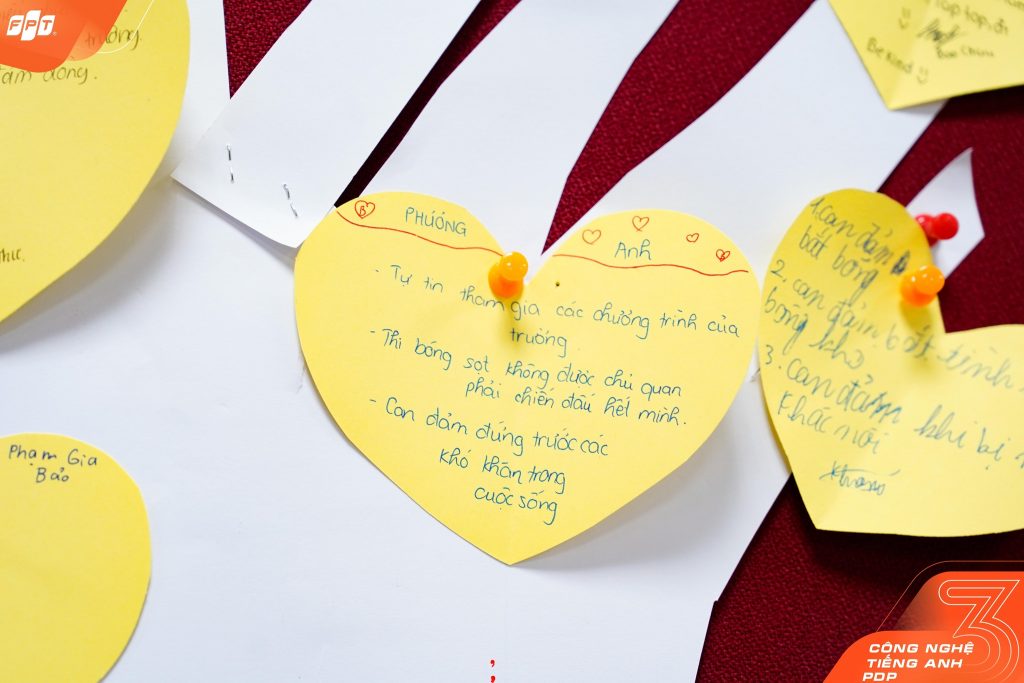 FPT
trường.
đám đông.
Phạm Gia
Bảo
PHƯƠNG
Anh
- Tự tin tham gia các chương trình của
trường
- Thi bóng sọt không được chủ quan
phải chiến đấu hết mình.
- Can đảm đứng trước các
khó khăn trong
cuộc sống
Be kind
1. can đảm
bắt bóng
2. can đảm bắt bình
bóng khó
3. can đảm khi bị
khác nói
3
CÔNG NGHỆ
TIẾNG ANH
PDP